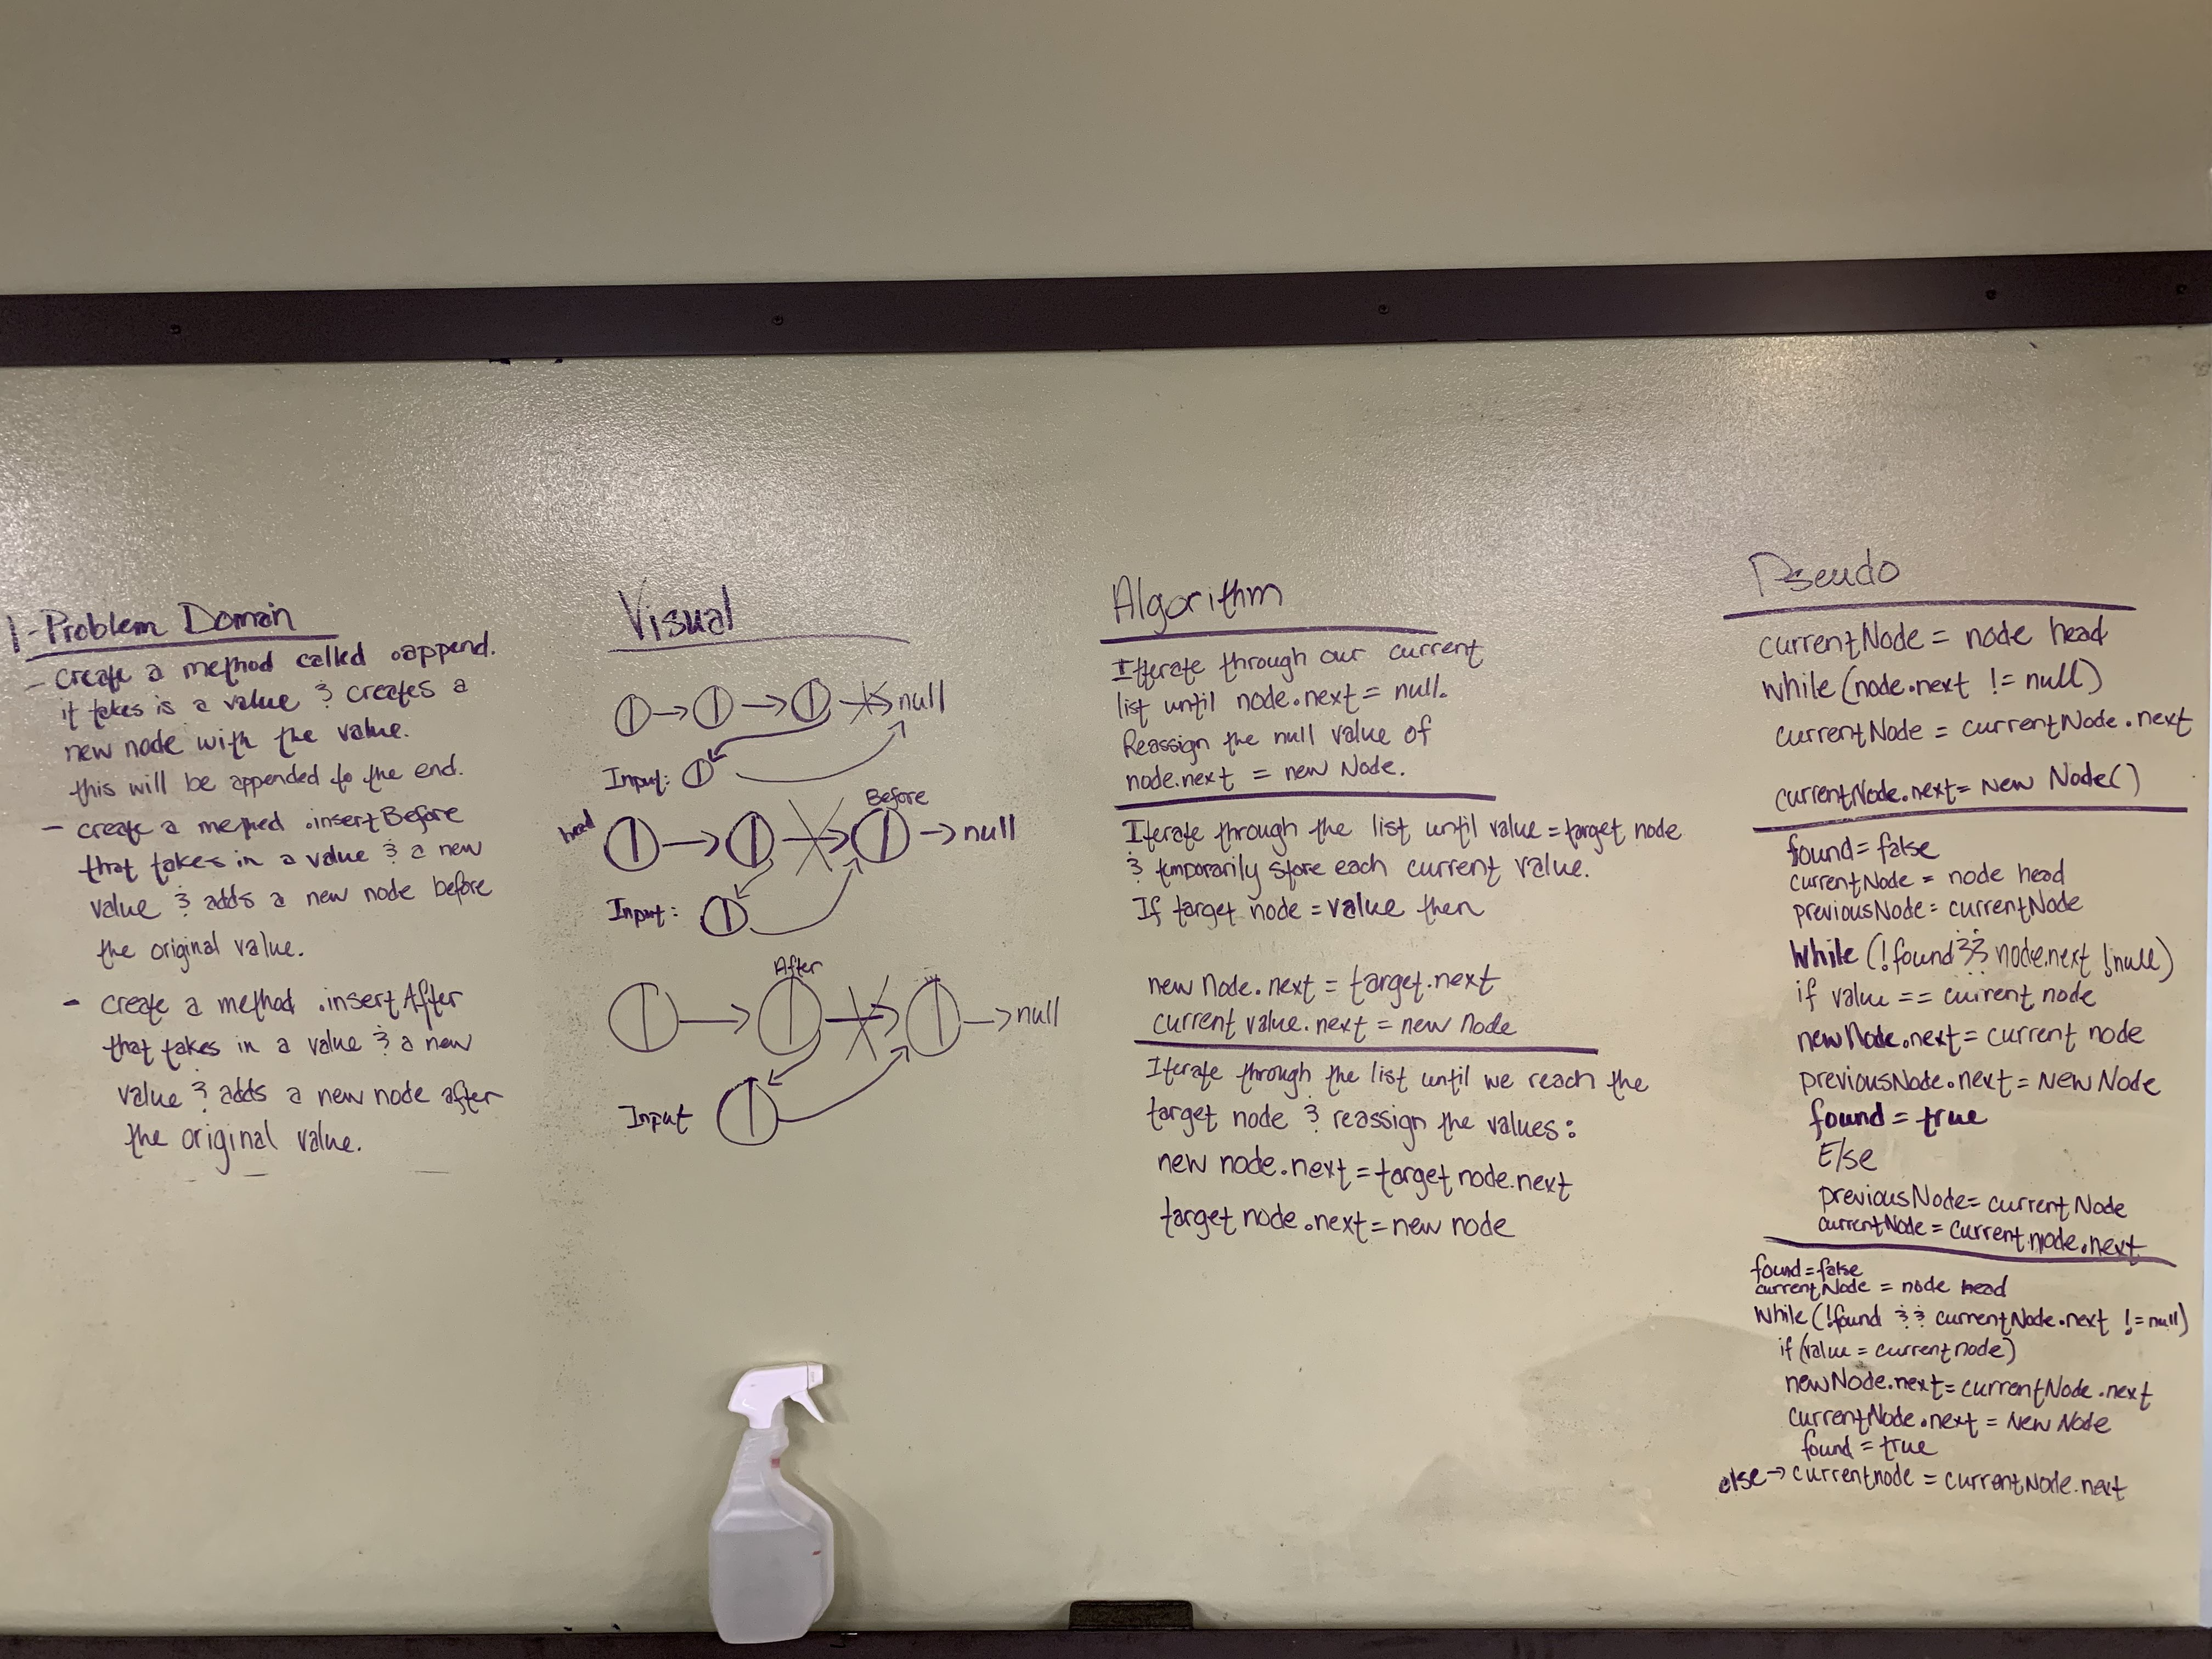 1-Problem Domain
- create a method called .append.
it takes is a value & creates a
new node with the value.
this will be appended to the end.
- create a method .insertBefore
that takes in a value & a new
value & adds a new node before
the original value.
- create a method .insertAfter
that takes in a value & a new
value & adds a new node after
the original value.
Visual
null
Input:
Before
head
null
Input:
After
null
Input
Algorithm
Itterate through our current
list until node.next = null.
Reassign the null value of
node.next = new Node.
Iterate through the list until value = target node
& temporarily store each current value.
If target node = value then
new Node.next = target.next
current value.next = new node
Iterate through the list until we reach the
target node & reassign the values:
new node.next = target node.next
target node.next = new node
Pseudo
currentNode = node head
while (node.next != null)
currentNode = currentNode.next
currentNode.next = New Node()
found = false
currentNode = node head
previousNode = currentNode
While (!found && node.next !null)
if value == current node
newNode.next = current node
previousNode.next = NewNode
found = true
Else
previousNode = currentNode
currentNode = current.node.next
found = false
currentNode = node head
While (!found && currentNode.next != null)
if (value = current node)
newNode.next = currentNode.next
currentNode.next = New Node
found = true
else → currentnode = currentNode.next